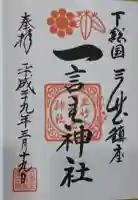 下総国
三竈鎮座
一言主神社
奉拝
平成二十九年三月十九日